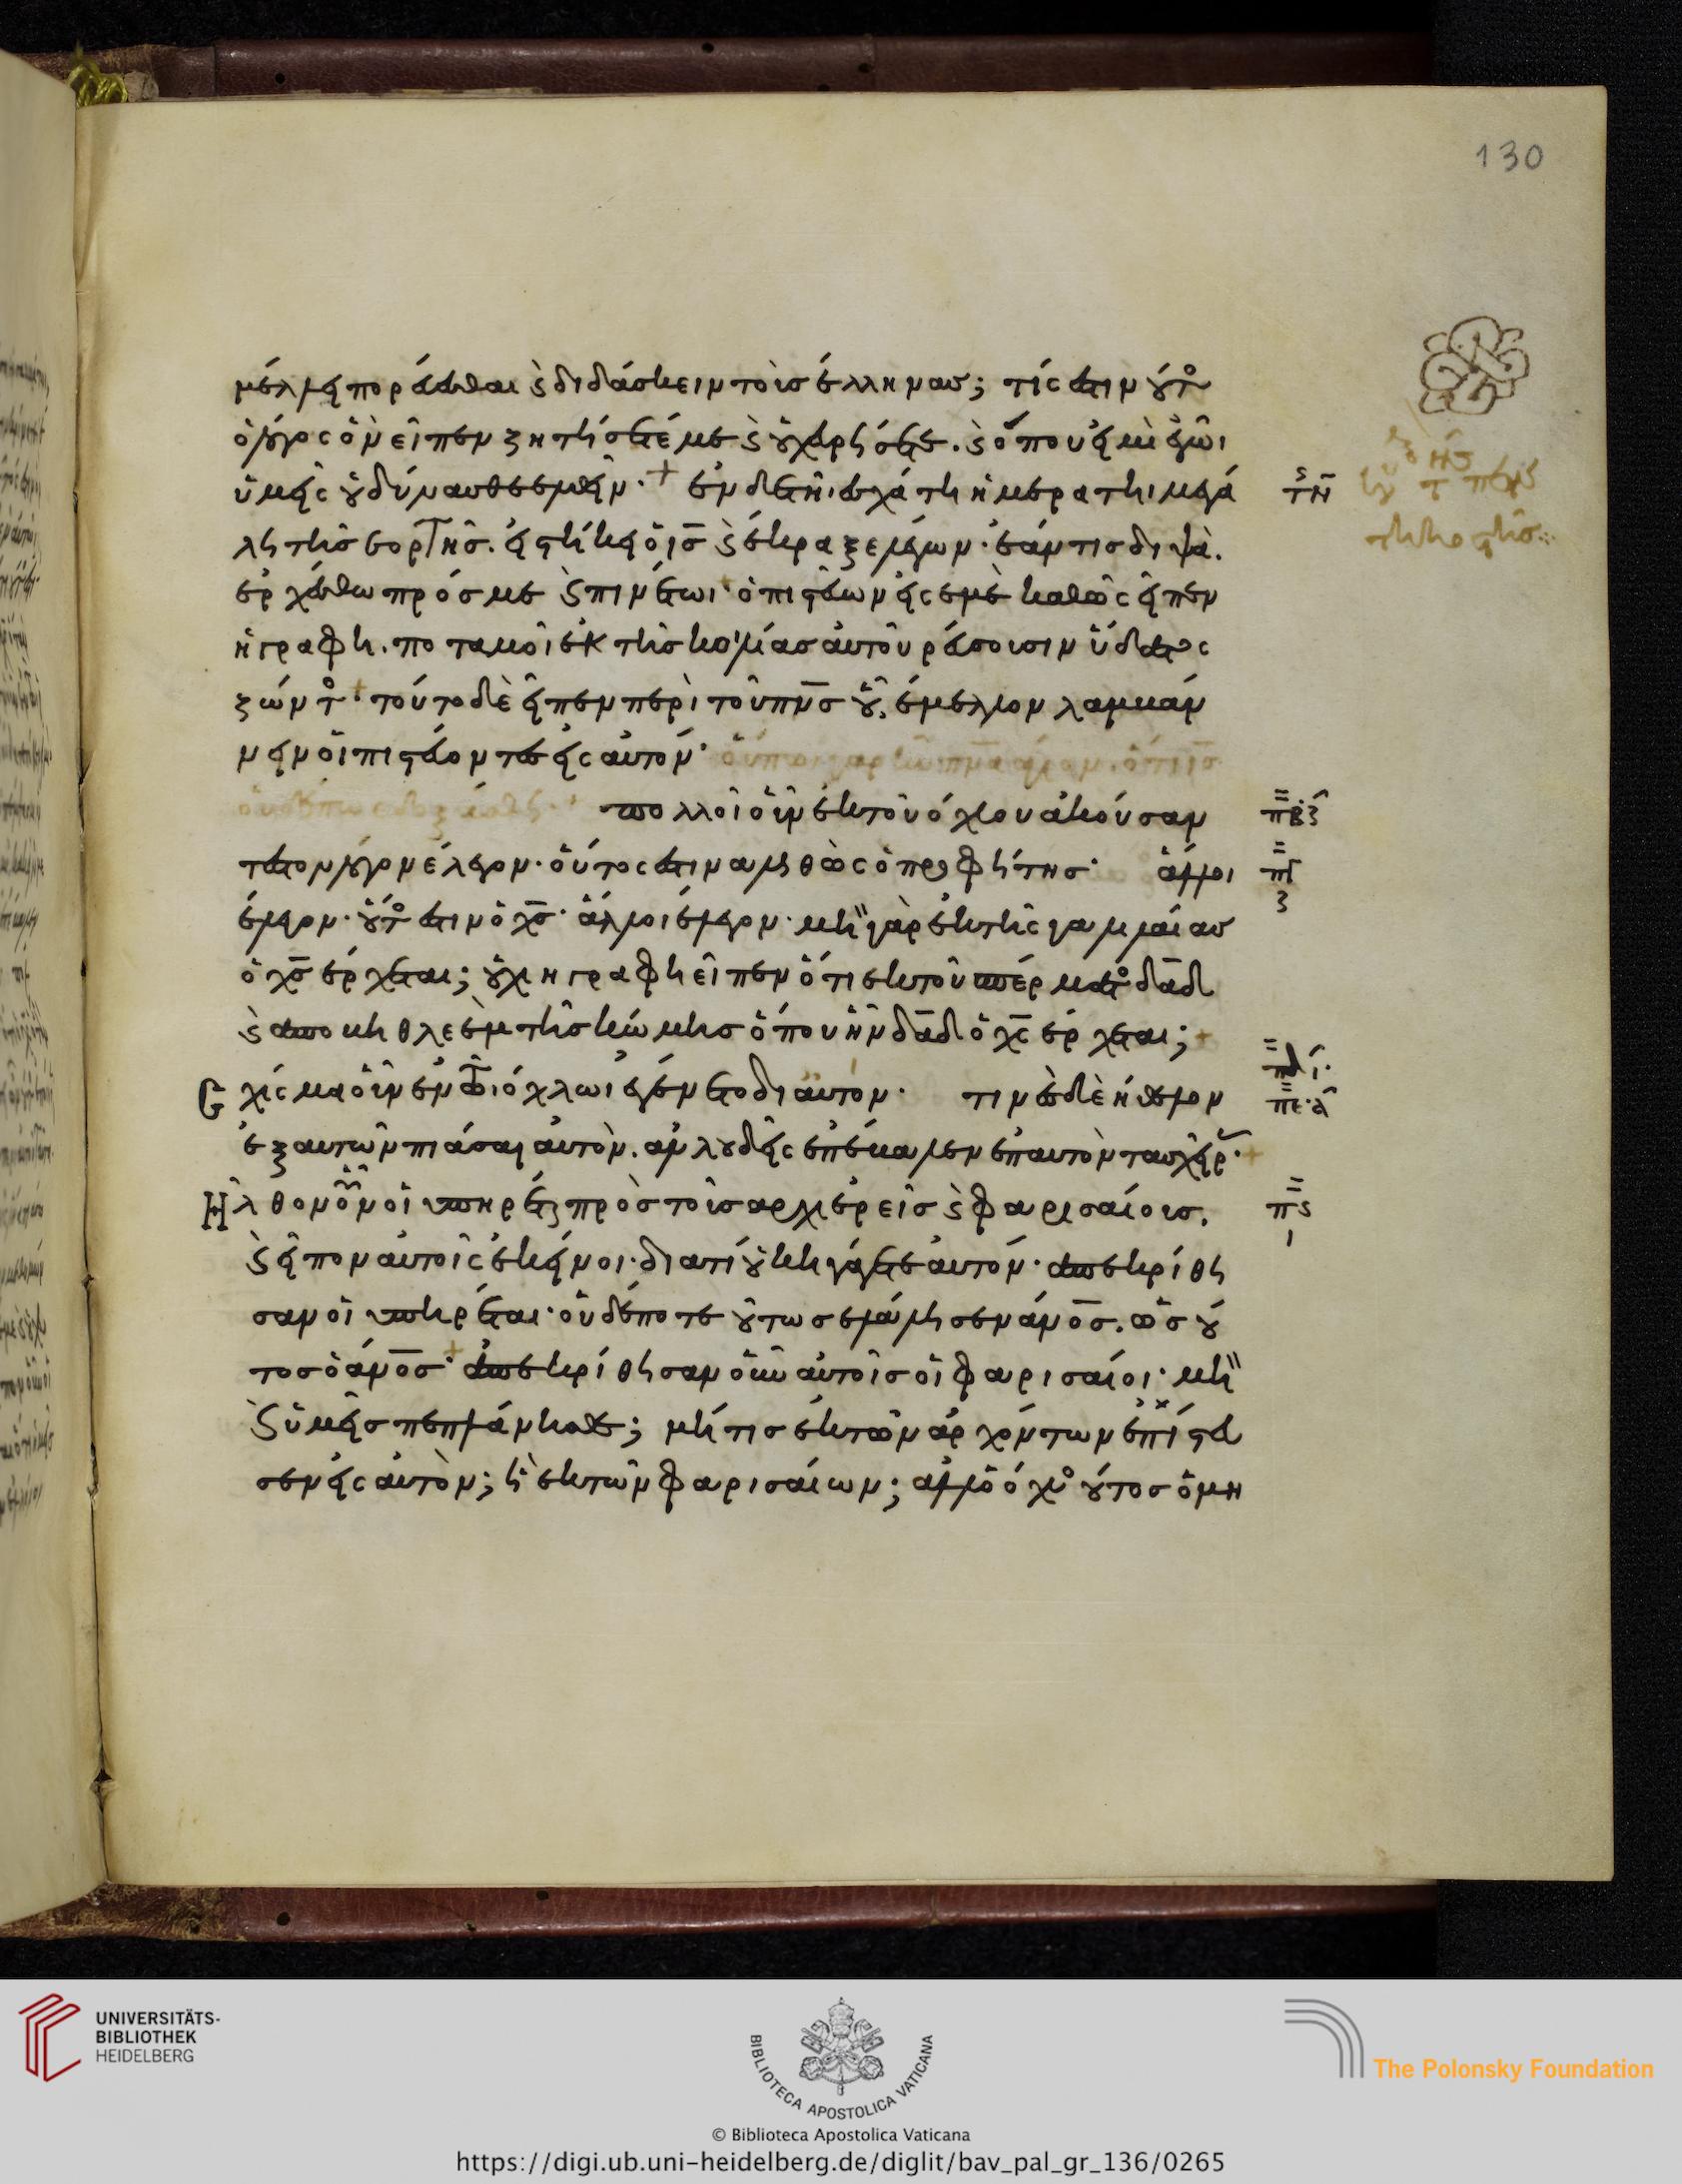 130
μέλλει πορεύεσθαι ϗ διδάσκειν τοὺσ ἕλληνασ; τίς ἐστιν οὗτο
ὁ λόγος ὃν εἶπεν ζητήσετέ με ϗ οὐχ εὑρήσετε. ϗ ὅπου εἰμὶ ἐγὼ
ὑμεῖς οὐ δύνασθε ἐλθεῖν· + ἐν δὲ τῆι ἐσχάτη ἡμερα τῆι μεγά
λη τῆσ ἑορτῆσ. εἱστήκει ὁ ισ ϗ ἔκραξε λέγων· ἐάν τισ διψᾶ.
ἐρχέσθω πρόσ με ϗ πινέτωι· ὁ πιστεύων εἰς ἐμὲ καθὼς εἶπεν
ἡ γραφη. ποταμοὶ ἐκ τῆσ κοιλίασ αὐτοῦ ῥεύσουσιν ὕδατος
ζῶντο· τοῦτο δὲ εἶπεν περὶ τοῦ πνσ οὗ, ἔμελλον λαμβάν
νειν οἱ πιστεύοντες εἰς αὐτόν· οὔπω γαρ ἦν πνα ἅγιον. ὅτι ισ
οὐδέπω ἐδοξάσθη· πολλοὶ οὖν ἐκ τοῦ ὄχλου ἀκούσαν
τες τον λόγον ἔλεγον· οὗτος ἐστιν ἀληθῶς ὁ προφήτησ· ἄλλοι
ἔλεγον· οὗτο ἐστιν ὁ χσ· ἄλλοι ἔλεγον· μὴ γὰρ ἐκ τῆς γαλιλαίασ
ὁ χσ ἔρχεται; οὐχι ἡ γραφη εἶπεν ὅτι ἐκ τοῦ σπέρματο δαδ
ϗ ἀπο βηθλεὲμ τῆσ κώμησ ὅπου ἦν δαδ ὁ χς ἔρχεται; +
Σχίσμα οὖν ἐν τῶι ὄχλωι ἐγένετο δι αὐτόν· τινὲς δὲ ἤθελον
ἐξ αὐτῶν πιάσαι αὐτὸν. ἀλλ οὐδεὶς ἐπέβαλεν ἐπ αὐτὸν τασ χεῖρ· +
Ἦλθον οὖν οἱ ὑπηρέται πρὸσ τοὺσ αρχιερεῖσ ϗ φαρισαίουσ.
ϗ εἶπον αὐτοῖς ἐκεῖνοι· διατί οὐκ ἠγάγετε αὐτόν· ἀπεκρίθη
σαν οἱ ὑπηρέται· οὐδέποτε οὕτωσ ἐλάλησεν ἄνοσ. ὡσ οὗ
τοσ ὁ ἄνοσ· + ἀπεκρίθησαν οὖν αὐτοῖσ οἱ φαρισαίοι· μὴ
ϗ ὑμεῖσ πεπλάνησθε; μή τισ ἐκ τῶν ἀρχόντων ἐπίστευ
σεν εἰς αὐτὸν; ἢ ἐκ τῶν φαρισαίων; ἀλλ ὁ ὄχλο οὗτοσ ὁ μη
UNIVERSITÄTS-
BIBLIOTHEK
HEIDELBERG
BIBLIOTECA APOSTOLICA VATICANA
The Polonsky Foundation
© Biblioteca Apostolica Vaticana
https://digi.ub.uni-heidelberg.de/diglit/bav_pal_gr_136/0265